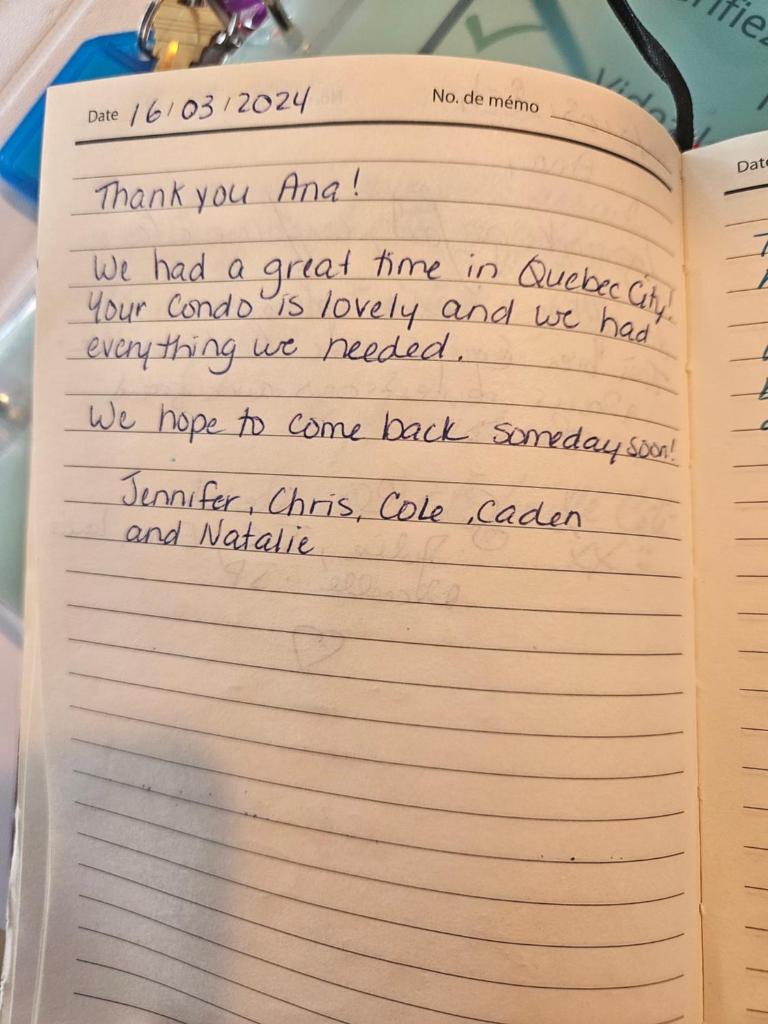 Date 16/03/2024 No. de mémo
Thank you Ana!
We had a great time in Quebec City!
Your Condo is lovely and we had
everything we needed.
We hope to come back someday soon!
Jennifer, Chris, Cole, Caden
and Natalie
Date